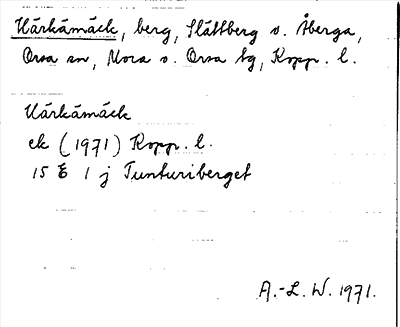 Härkämäck, berg, Slättberg s. Åberga,
Orsa sn, Mora o. Orsa tg, Kopp. l.
Härkämäck
ek (1971) Kopp. l.
15 E 1 j Tunturiberget
A.-L. W. 1971.